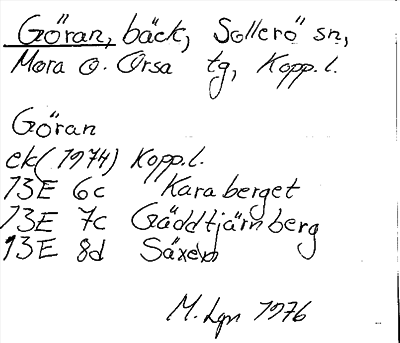 Göran, bäck, Sollerö sn,
Mora o. Orsa tg, Kopp.l.
Göran
ek (1974) Kopp.l.
13E 6c Karaberget
13E 7c Gäddtjärnberg
13E 8d Säxen
M. Lgn 1976